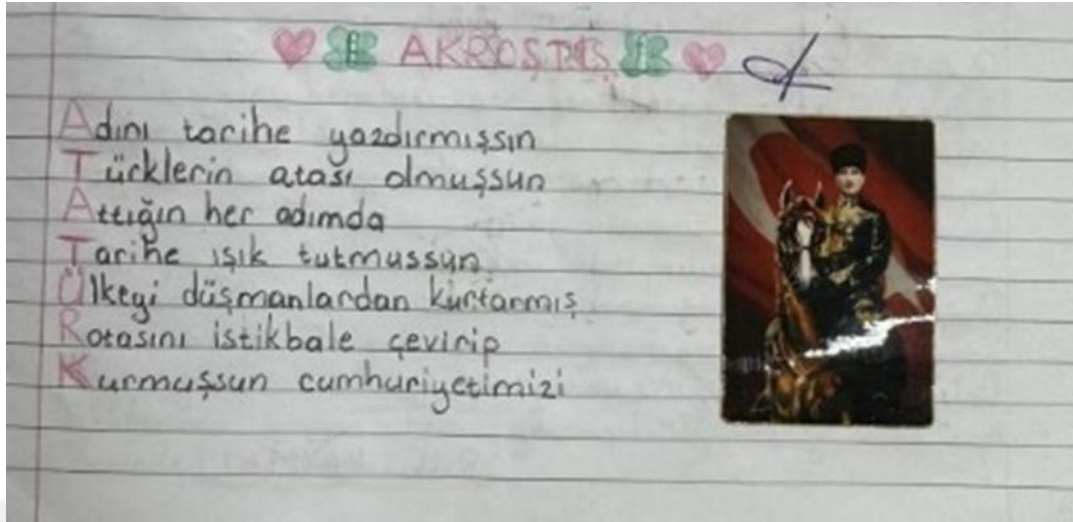 AKROSTİŞ
Adını tarihe yazdırmışsın
Türklerin atası olmuşsun
Attığın her adımda
Tarihe ışık tutmussun
Ülkeyi düşmanlardan kurtarmış
Rotasını istikbale çevirip
Kurmuşsun cumhuriyetimizi